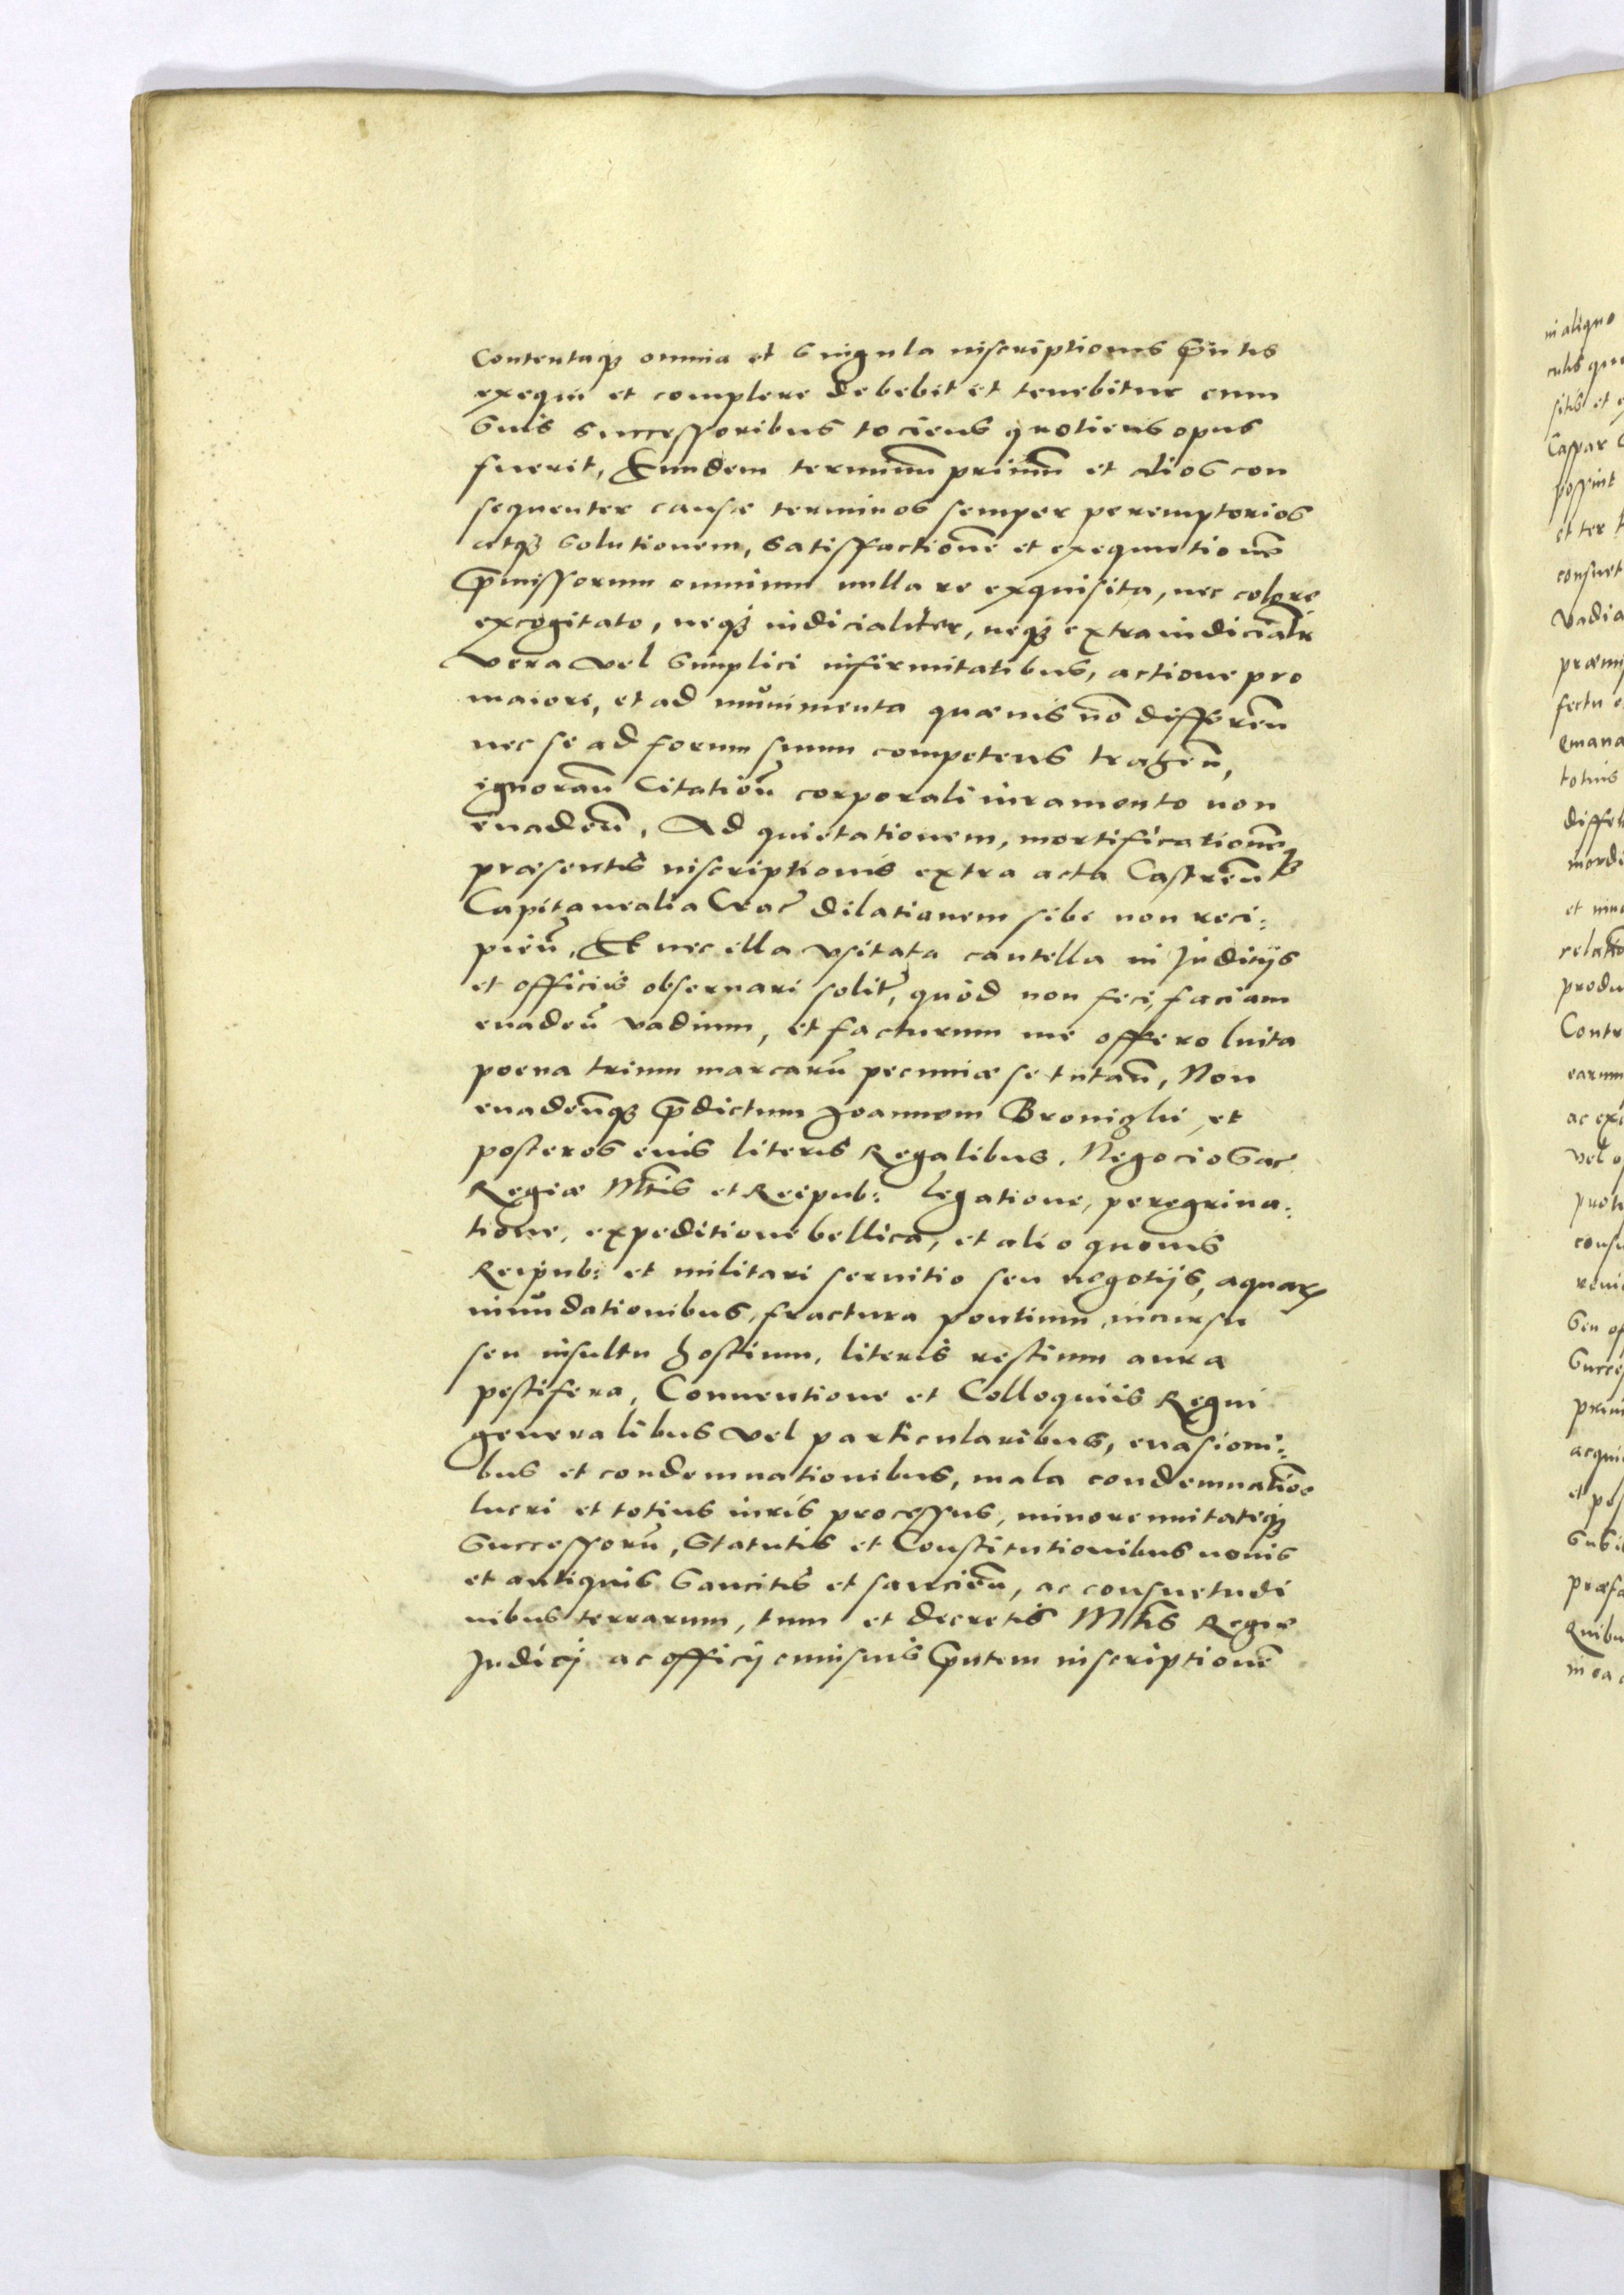 Contentaq₃ omnia et singula inscriptionis p̄ntis
exequi et complere debebit et tenebitur cum
suis successoribus tociens quotiens opus
fuerit, Eundem terminū primū et alios con
sequenter causæ terminos semper peremptorios
atq₃ solutionem, satisfactionē et exequutionē
p̄missorum omnium nulla re exquisita, nec colore
excogitato, neq₃ iudicialiter, neq₃ extraiudicialr
vera vel simplici infirmitatibus, actione pro
maiori, et ad munimenta quævis nō differeñ
nec se ad forum suum competens traheñ,
ignorañ Citationū corporali iuramento non
evadeñ, Ad quietationem, mortificationemq₃
præsentis inscriptionis extra acta Castreñ
Capitanealia Crac̄ dilationem sibi non reci:
pieñ, Et nec illa vsitata cautella in Juditijs
et officiis observari solit̄, quòd non feci, faciam
evadeñ vadium, et facturum me offero luita
poena trium marcarū pecuniæ se tutañ, Non
evadeñq₃ p̄dictum Joannem Broniglii et
posteros eius literis Regalibus, Negocio Sac̄
Regiæ Mtis et Reipub: legatione, peregrina:
tione, expeditione bellica, et alio quovis
Reipub: et militari servitio seu negotijs, aquaꝝ
inundationibus, fractura pontium, incursu
seu insultu hostium, literis restium aura
pestifera, Conventione et Colloquiis Regni
generalibus vel particularibus, evasioni:
bus et condemnationibus, mala condemnatioē
lucri et totius iuris processus, minorennitateq₃
Successorū, Statutis et Constitutionibus novis
et antiquis Sancitis et sancieñ, ac consuetudi
nibus terrarum, tum et decretis Mtis Regiæ
Judicij ac officij cuiusvis p̄ntem inscriptionē
in aliquo
Caspar
possint
et ter
consuet
vadia
præmi
fectu
emana
totius
differ
mordi
produ
Contr
earum
ac exe
vel o
consu
Succes
prim
acqui
præfa
Quibu
in ea